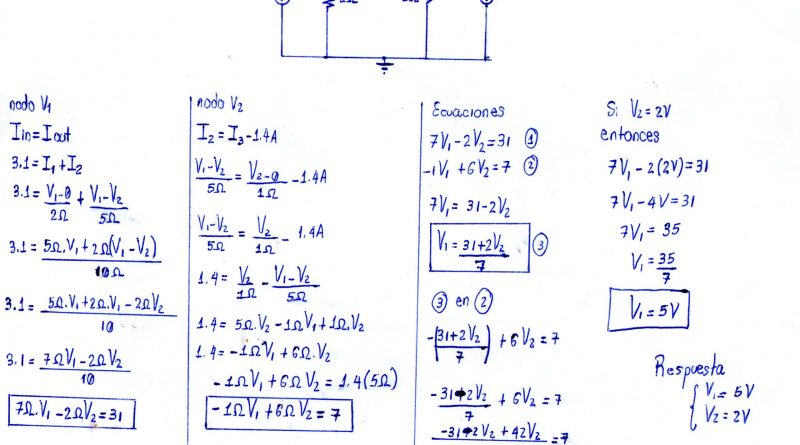 nodo V₁
Iin = Iout
3.1 = I₁ + I₂
3.1 = (V₁-0)/2Ω + (V₁-V₂)/5Ω
3.1 = (5Ω.V₁ + 2Ω(V₁-V₂))/10Ω
3.1 = (5Ω.V₁ + 2Ω.V₁ - 2ΩV₂)/10
3.1 = (7ΩV₁ - 2ΩV₂)/10
7Ω.V₁ - 2ΩV₂ = 31
nodo V₂
I₂ = I₃ - 1.4A
(V₁-V₂)/5Ω = (V₂-0)/1Ω - 1.4A
(V₁-V₂)/5Ω = V₂/1Ω - 1.4A
1.4 = V₂/1Ω - (V₁-V₂)/5Ω
1.4 = 5Ω.V₂ - 1ΩV₁ + 1Ω.V₂
1.4 = -1ΩV₁ + 6Ω.V₂
-1ΩV₁ + 6ΩV₂ = 1.4(5Ω)
-1ΩV₁ + 6ΩV₂ = 7
Ecuaciones
7V₁ - 2V₂ = 31 ①
-1V₁ + 6V₂ = 7 ②
7V₁ = 31 - 2V₂
V₁ = (31+2V₂)/7 ③
③ en ②
-((31+2V₂)/7) + 6V₂ = 7
(-31-2V₂)/7 + 6V₂ = 7
-31-2V₂ + 42V₂ = 7
Si V₂ = 2V
entonces
7V₁ - 2(2V) = 31
7V₁ - 4V = 31
7V₁ = 35
V₁ = 35/7
V₁ = 5V
Respuesta
V₁ = 5V
V₂ = 2V